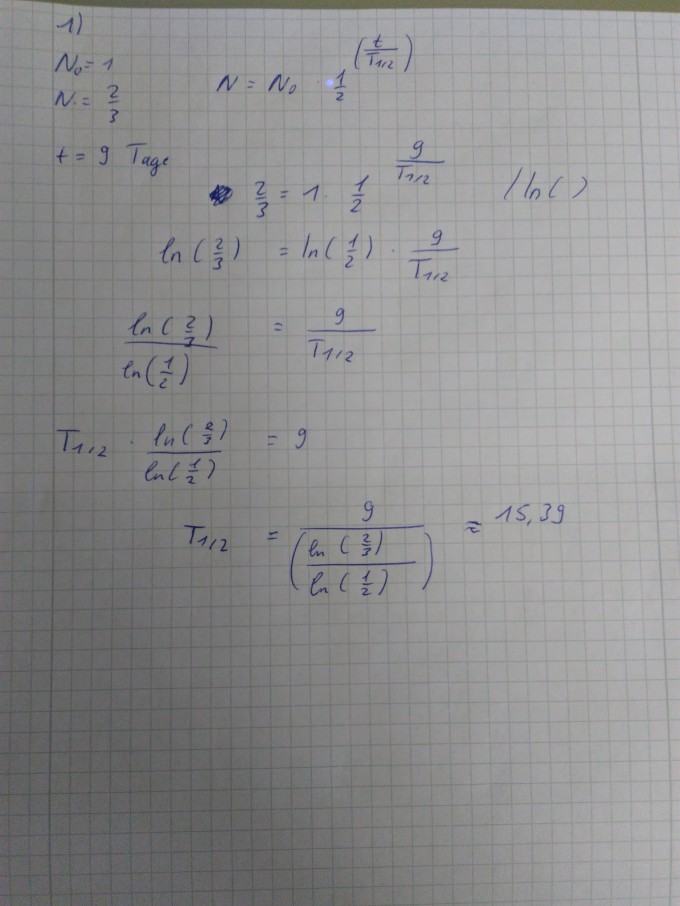 1)
N₀ = 1
N = 2/3
N = N₀ · 1/2^(t/T1/2)
t = 9 Tage
2/3 = 1 · 1/2^(9/T1/2) | ln( )
ln(2/3) = ln(1/2) · 9/T1/2
ln(2/3)/ln(1/2) = 9/T1/2
T1/2 · ln(2/3)/ln(1/2) = 9
T1/2 = 9/(ln(2/3)/ln(1/2)) ≈ 15,39